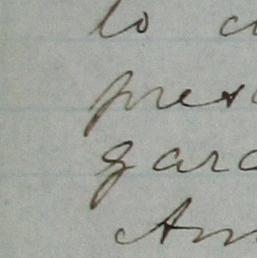 to c
pres
gard
Am